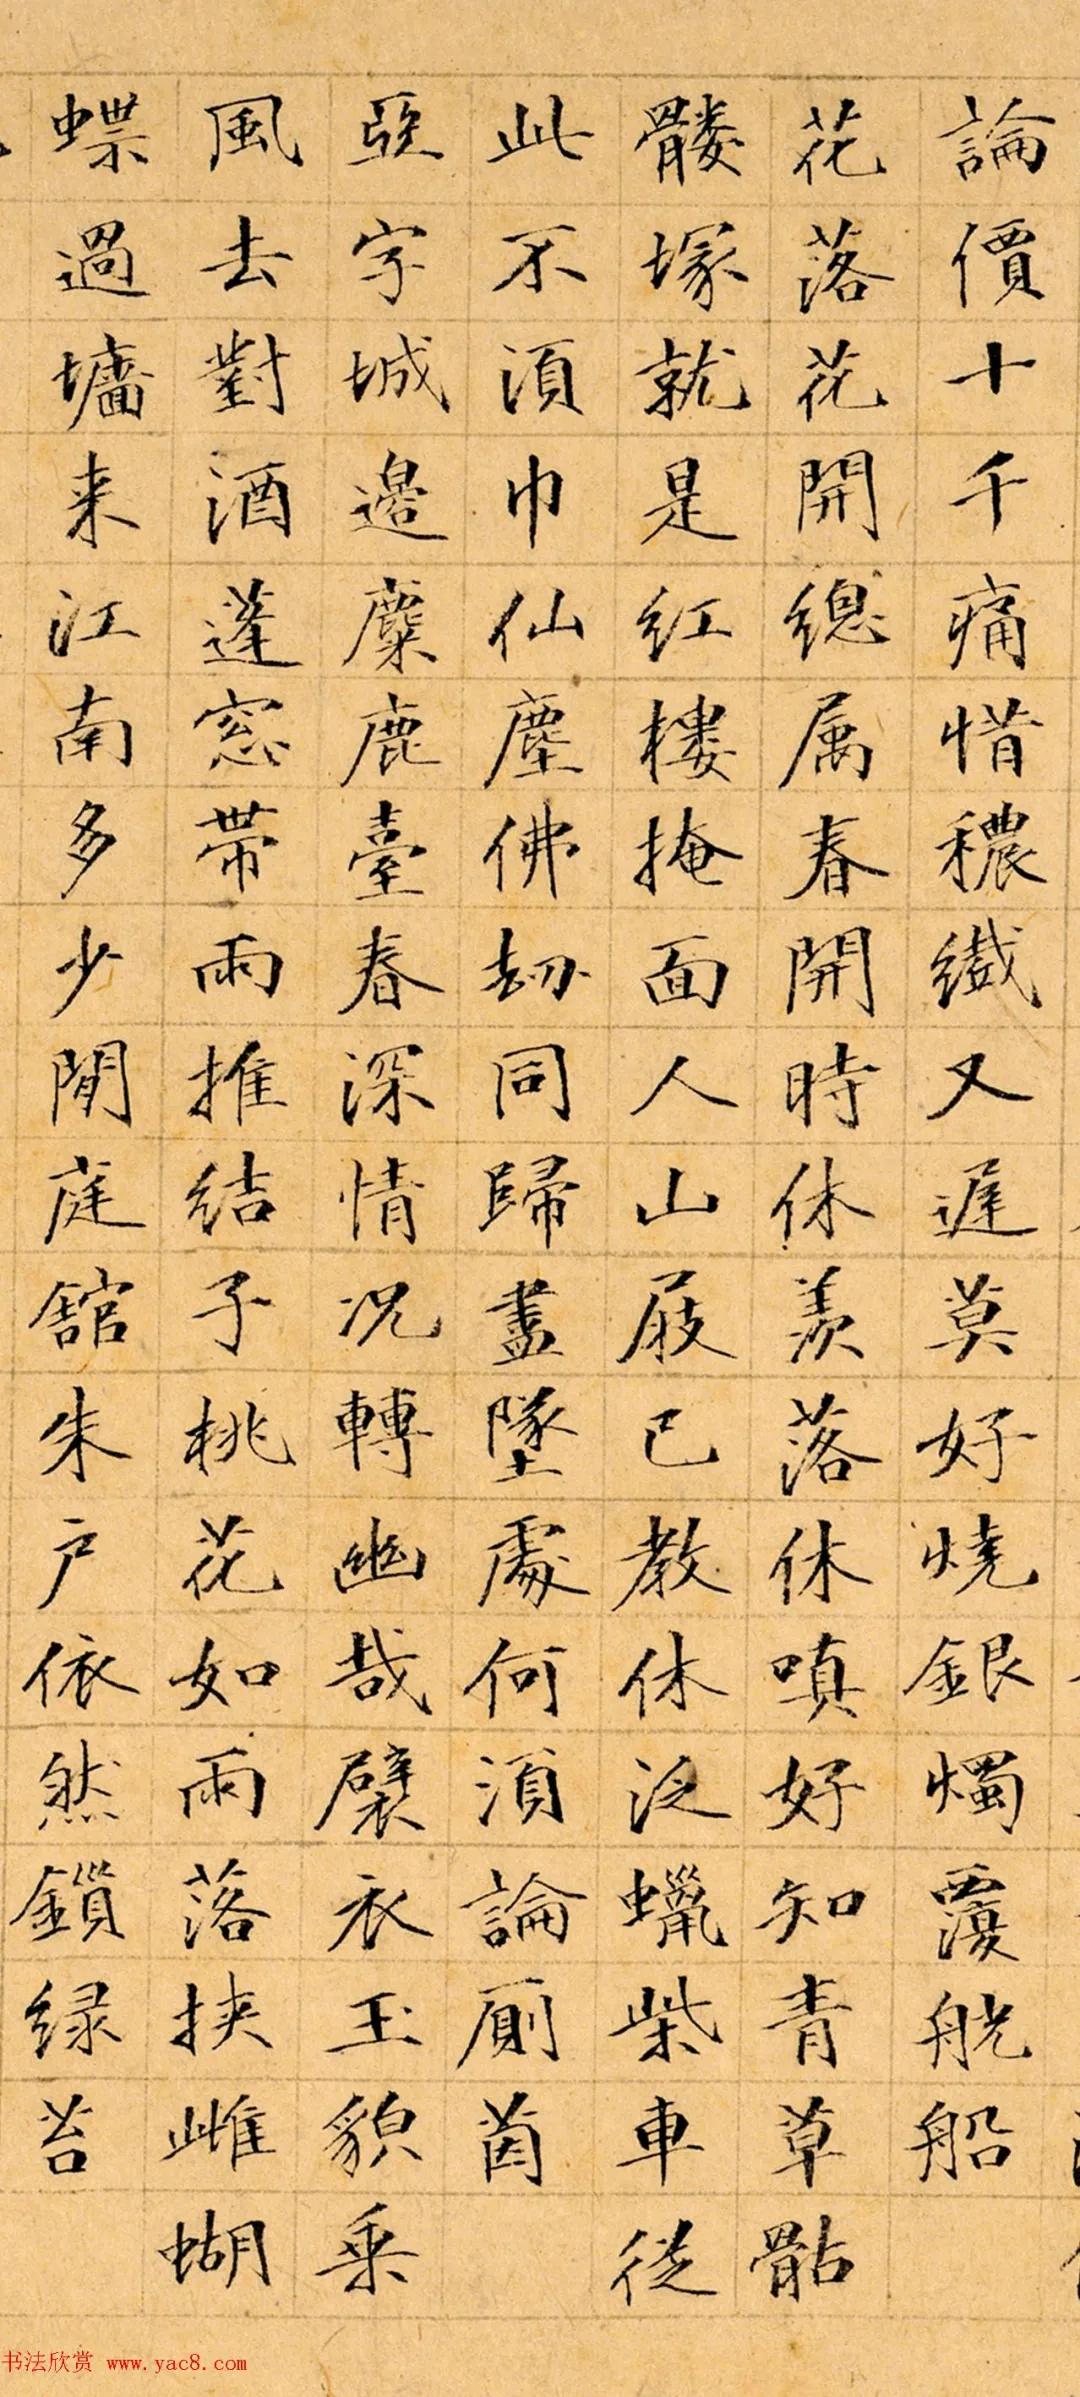 論價十千痛惜穠纖又遲莫好燒銀燭覆觥船
花落花開總属春開時休羡落休嗔好知青草骷
髏塚就是红樓掩面人山屐已教休泛蠟柴車從
此不須巾仙塵佛劫同歸盡墜處何須論厠茵
亞字城邊麋鹿臺春深情况轉幽哉襞衣玉貌乗
風去對酒蓬窓帶雨推结子桃花如雨落挟雌蝴
蝶過墻来江南多少閒庭舘朱户依然鎖绿苔
书法欣赏 www.yac8.com